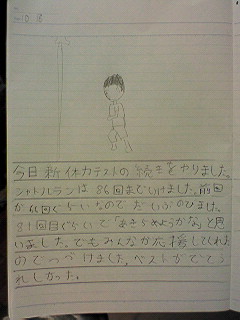 今日新体力テストの続きをやりました。
シャトルランは86回までいけました。前回
が61回ぐらいなのでだいぶのびました。
81回目ぐらいで「あきらめようかな」と思
いました。でもみんなが応援してくれた
のでつづけました。ベストがでてう
れしかった。